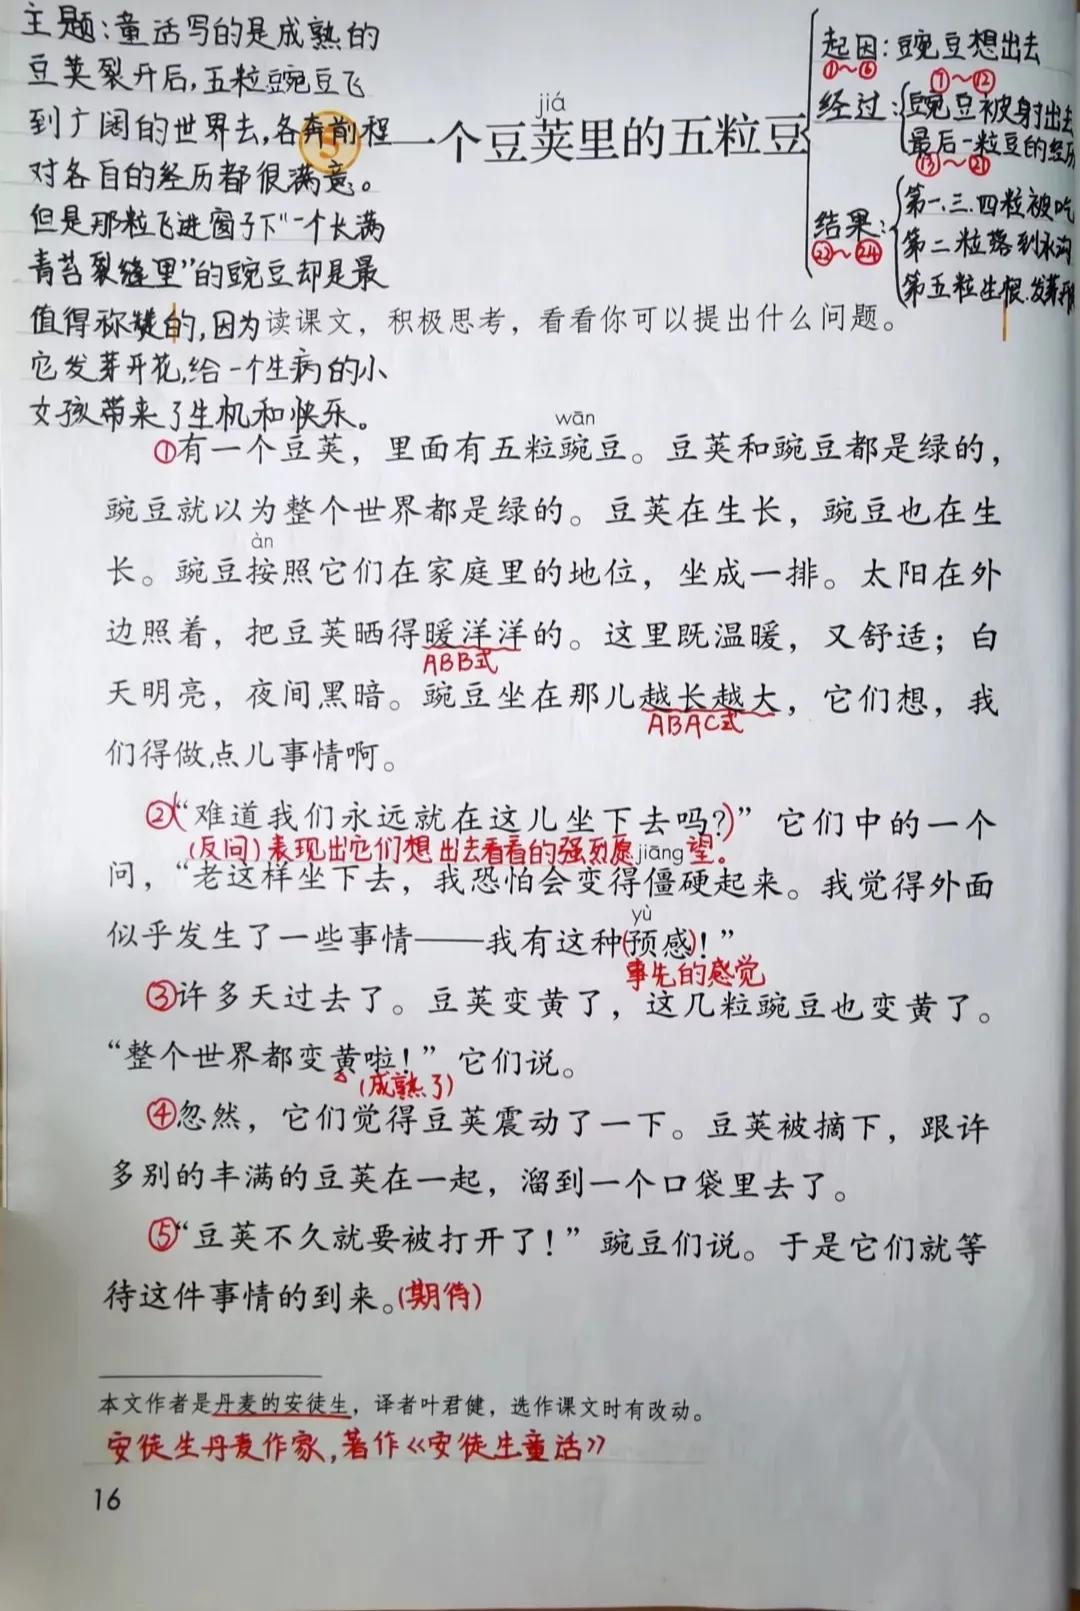 主题:童话写的是成熟的
豆荚裂开后,五粒豌豆飞
到广阔的世界去,各奔前程
对各自的经历都很满意。
但是那粒飞进窗子下"一个长满
青苔裂缝里"的豌豆却是最
值得称赞的,因为
它发芽开花,给一个生病的小
女孩带来了生机和快乐。
起因:豌豆想出去
①~⑥
①~⑫
经过:豌豆被射出去
最后一粒豆的经历
⑬~㉑
结果:
㉒~㉔
第一、三、四粒被吃
第二粒落到水沟
第五粒生根、发芽开
jiá
5 一个豆荚里的五粒豆
读课文，积极思考，看看你可以提出什么问题。
wān
①有一个豆荚，里面有五粒豌豆。豆荚和豌豆都是绿的，
豌豆就以为整个世界都是绿的。豆荚在生长，豌豆也在生
àn
长。豌豆按照它们在家庭里的地位，坐成一排。太阳在外
边照着，把豆荚晒得暖洋洋的。这里既温暖，又舒适；白
ABB式
天明亮，夜间黑暗。豌豆坐在那儿越长越大，它们想，我
ABAC式
们得做点儿事情啊。
②(“难道我们永远就在这儿坐下去吗?)”它们中的一个
(反问)表现出它们想出去看看的强烈愿望。
jiāng
问，“老这样坐下去，我恐怕会变得僵硬起来。我觉得外面
yù
似乎发生了一些事情——我有这种(预感)！”
事先的感觉
③许多天过去了。豆荚变黄了，这几粒豌豆也变黄了。
“整个世界都变黄啦！”它们说。
(成熟了)
④忽然，它们觉得豆荚震动了一下。豆荚被摘下，跟许
多别的丰满的豆荚在一起，溜到一个口袋里去了。
⑤“豆荚不久就要被打开了！”豌豆们说。于是它们就等
待这件事情的到来。(期待)
本文作者是丹麦的安徒生，译者叶君健，选作课文时有改动。
安徒生丹麦作家,著作《安徒生童话》
16